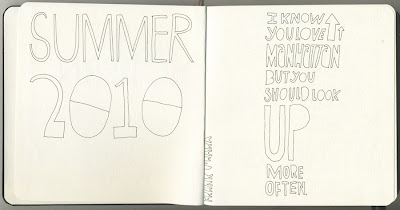 SUMMER
2010
I KNOW
YOU LOVE
MANHATTAN
BUT YOU
SHOULD LOOK
UP
MORE
OFTEN.